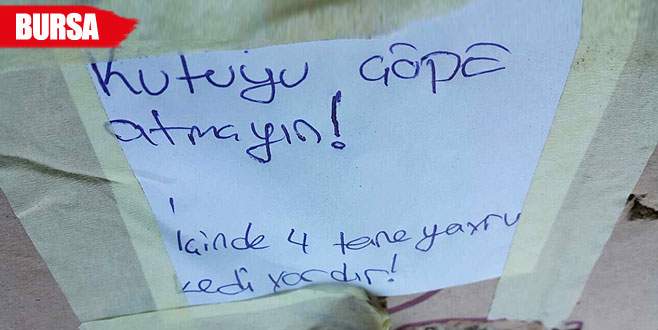 BURSA
Kutuyu ÇÖPE
atmayın!
İçinde 4 tane yavru
kedi vardır!